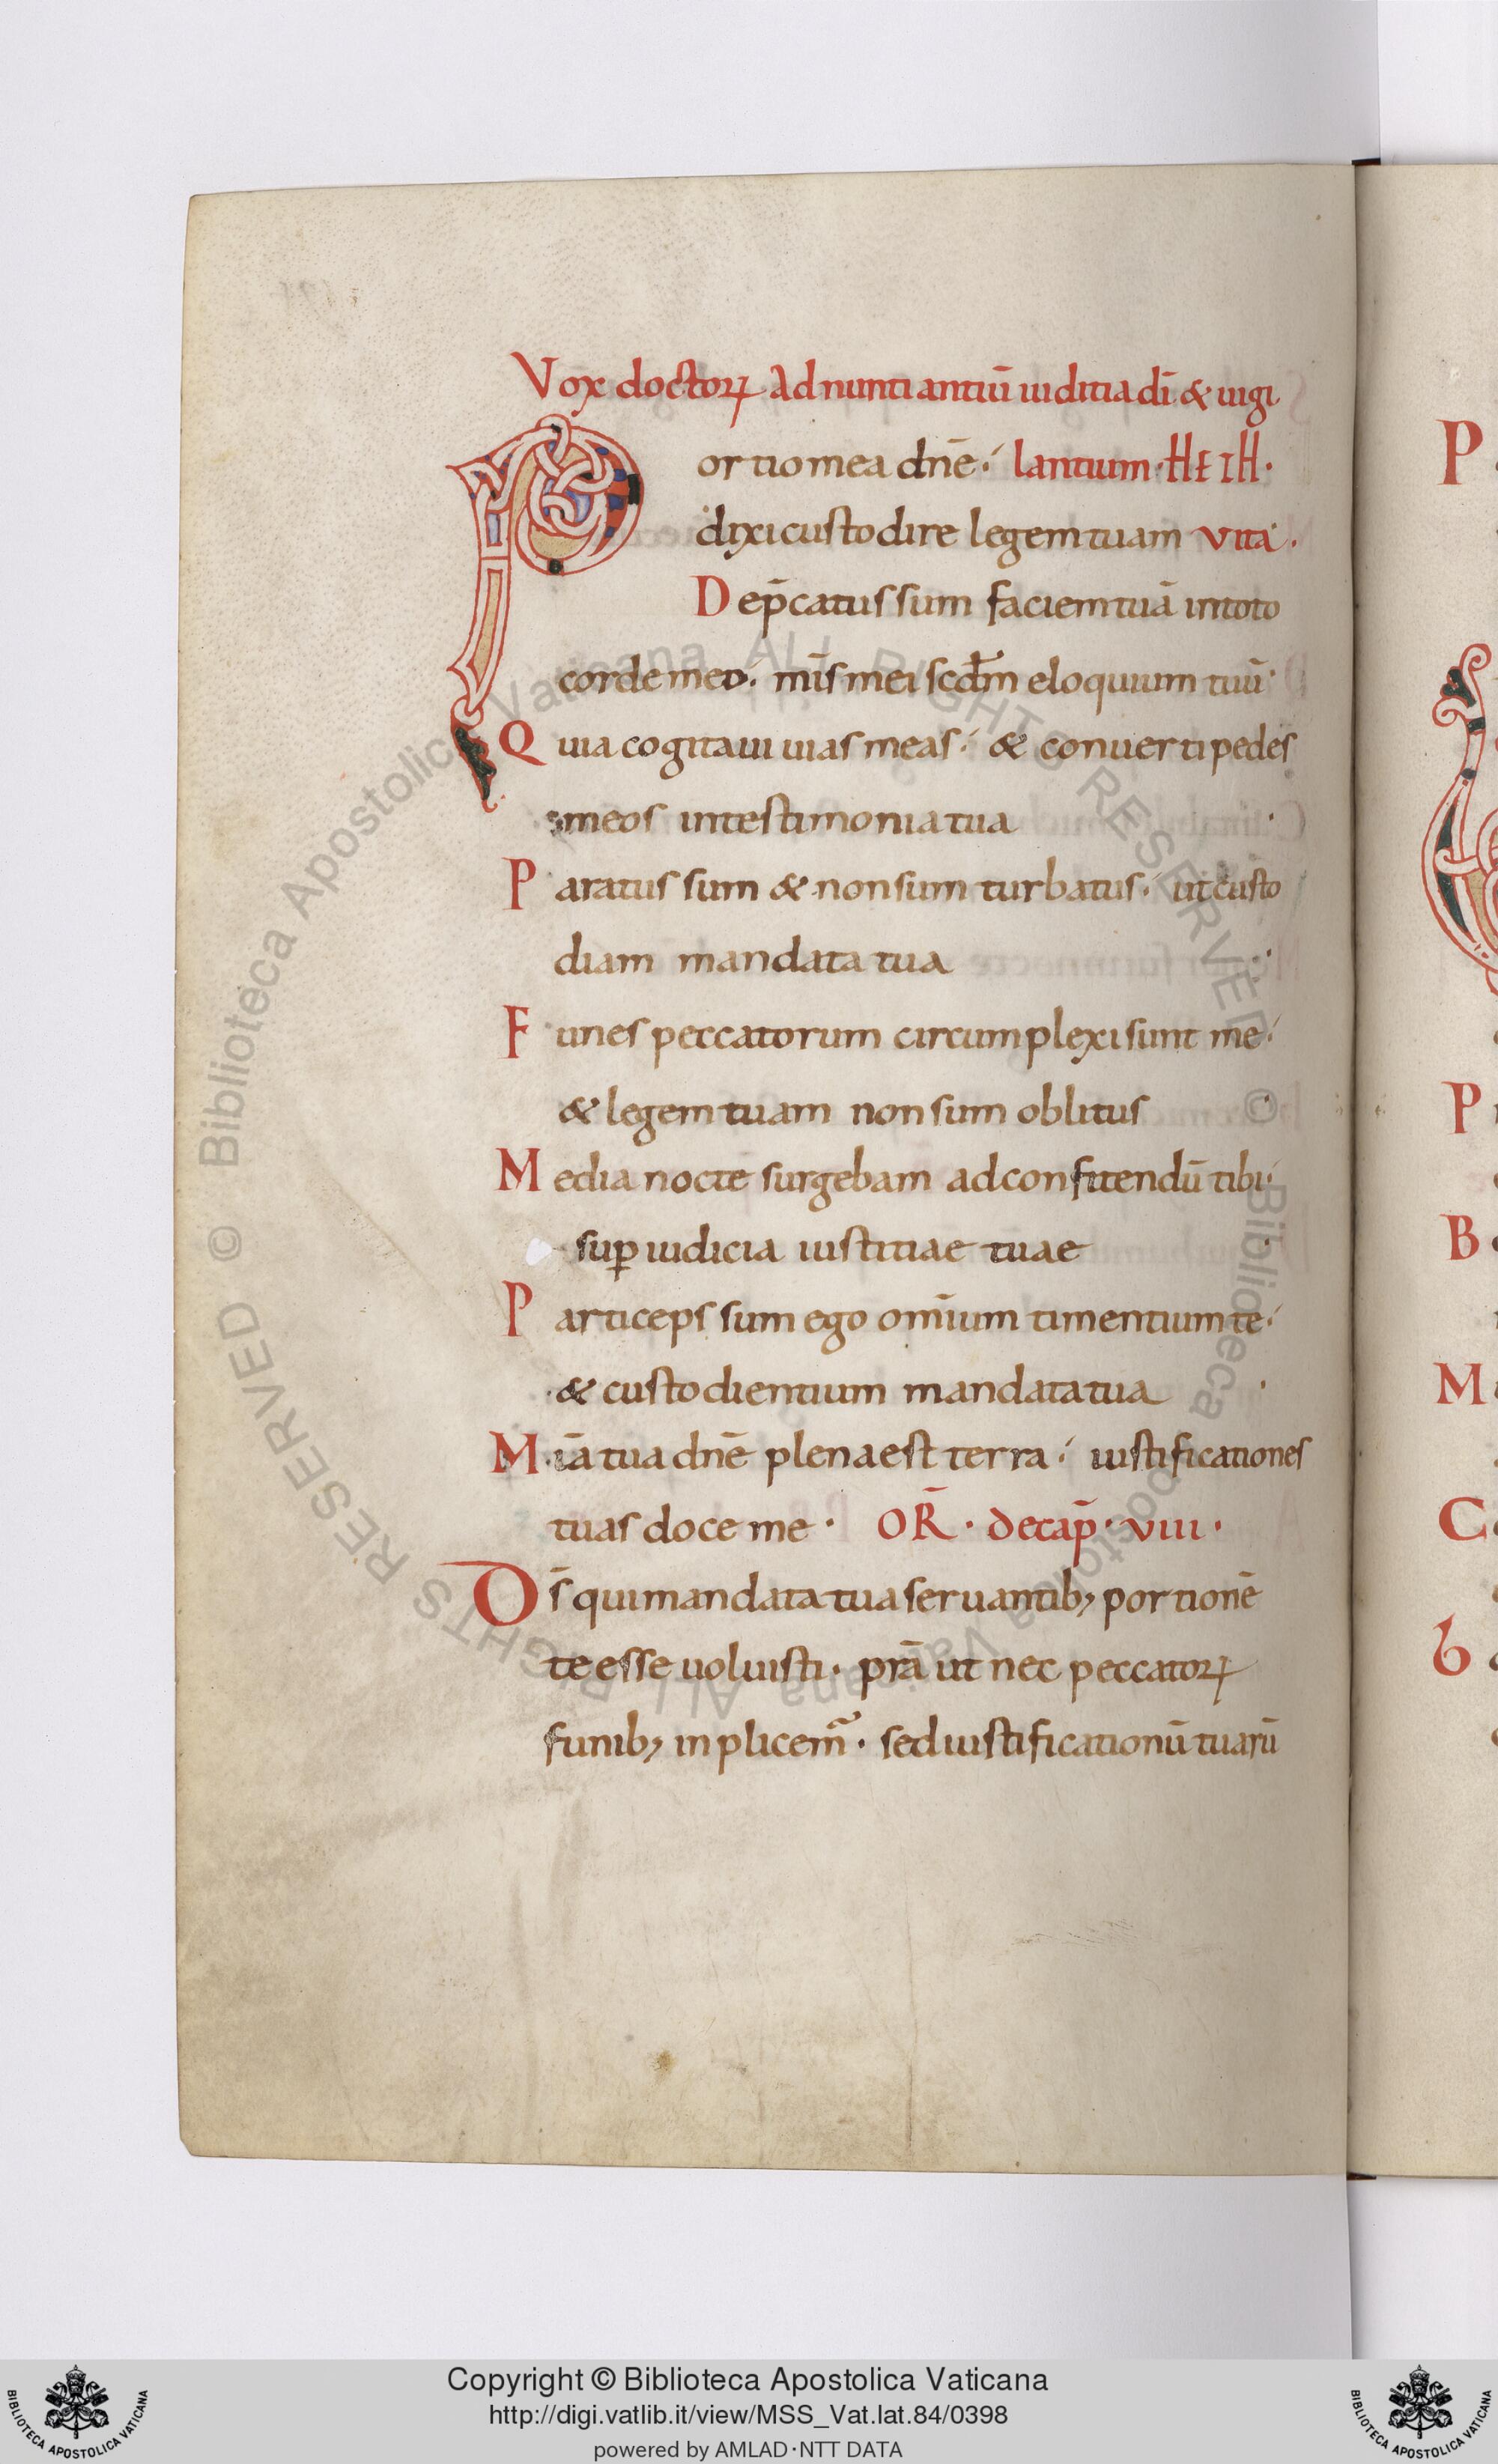 Vox doctoꝝ Adnuntiantiū iuditia dī & uigi
Portio mea dnē· lantium· HEIH·
dixi custodire legem tuam vita·
Dep̄catus sum faciem tuā intoto
corde meo· mīs mei scdm̄ eloquium tuū·
Quia cogitaui uias meas· & conuerti pedes
meos intestimonia tua
Paratus sum & non sum turbatus· ut custo
diam mandata tua
Funes peccatorum circumplexi sunt me·
& legem tuam non sum oblitus
Media nocte surgebam adconfitendū tibi·
suꝑ iudicia iustitiae tuae
Particeps sum ego omīum timentium te·
& custodientium mandata tua
Mīa tua dnē plena est terra· iustificationes
tuas doce me· OR̄· de cap̄· VIII·
Ds̄ qui mandata tua seruantib; portionē
te esse uoluisti· prā ut nec peccatoꝝ
funib; inplicem̄· sed iustificationū tuarū
P
P
B
M
C
b
© Biblioteca Apostolica Vaticana ALL RIGHTS RESERVED © Biblioteca Apostolica Vaticana ALL RIGHTS RESERVED
Copyright © Biblioteca Apostolica Vaticana
http://digi.vatlib.it/view/MSS_Vat.lat.84/0398
powered by AMLAD·NTT DATA
BIBLIOTECA APOSTOLICA VATICANA
BIBLIOTECA APOSTOLICA VATICANA